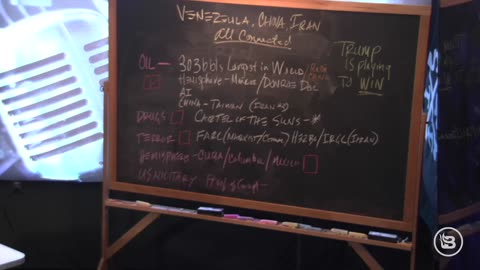 VENEZUELA, CHINA, IRAN
All Connected
OIL — 303 bbls Largest in World
Hemisphere - Monroe/DONROE Doc
AI
CHINA - TAIWAN (IRAN
DRUGS CARTEL OF THE SUNS - #
TERROR FARC (MARXIST/Comm) HEZB/IRGC (IRAN)
Hemisphere - Cuba/Columbia/Mexico
US Military Proof of
TRUMP
IS PLAYING
TO WIN
B